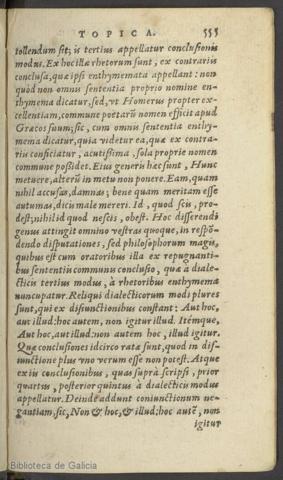 TOPICA. 555
tollendum sit; is tertius appellatur conclusionis
modus. Ex hoc illa rhetorum sunt, ex contrariis
conclusa, quæ ipsi enthymemata appellant: non
quòd non omnis sententia proprio nomine en-
thymema dicatur, sed, vt Homerus propter ex-
cellentiam, commune poëtarū nomen efficit apud
Græcos suum; sic, cum omnis sententia enthy-
mema dicatur, quia videtur ea, quæ ex contra-
riis conficiatur, acutissima, sola proprie nomen
commune possidet. Eius generis hæc sunt, Hunc
metuere, alterū in metu non ponere. Eam, quam
nihil accusas, damnas; bene quam meritam esse
autumas, dicis male mereri. Id, quod scis, pro-
dest; nihil id quod nescis, obest. Hoc disserendi
genus attingit omnino vestras quoque, in respō-
dendo disputationes, sed philosophorum magis,
quibus est cum oratoribus illa ex repugnanti-
bus sententiis communis conclusio, quæ à diale-
cticis tertius modus, à rhetoribus enthymema
nuncupatur. Reliqui dialecticorum modi plures
sunt, qui ex disiunctionibus constant: Aut hoc,
aut illud: hoc autem, non igitur illud. Itémque,
Aut hoc, aut illud: non autem hoc, illud igitur.
Quæ conclusiones idcirco ratæ sunt, quod in dis-
iunctione plus vno verum esse non potest. Atque
ex iis conclusionibus, quas suprà scripsi, prior
quartus, posterior quintus à dialecticis modus
appellatur. Deinde addunt coniunctionum ne-
gantiam, sic, Non & hoc, & illud: hoc autē, non
igitur
Biblioteca de Galicia